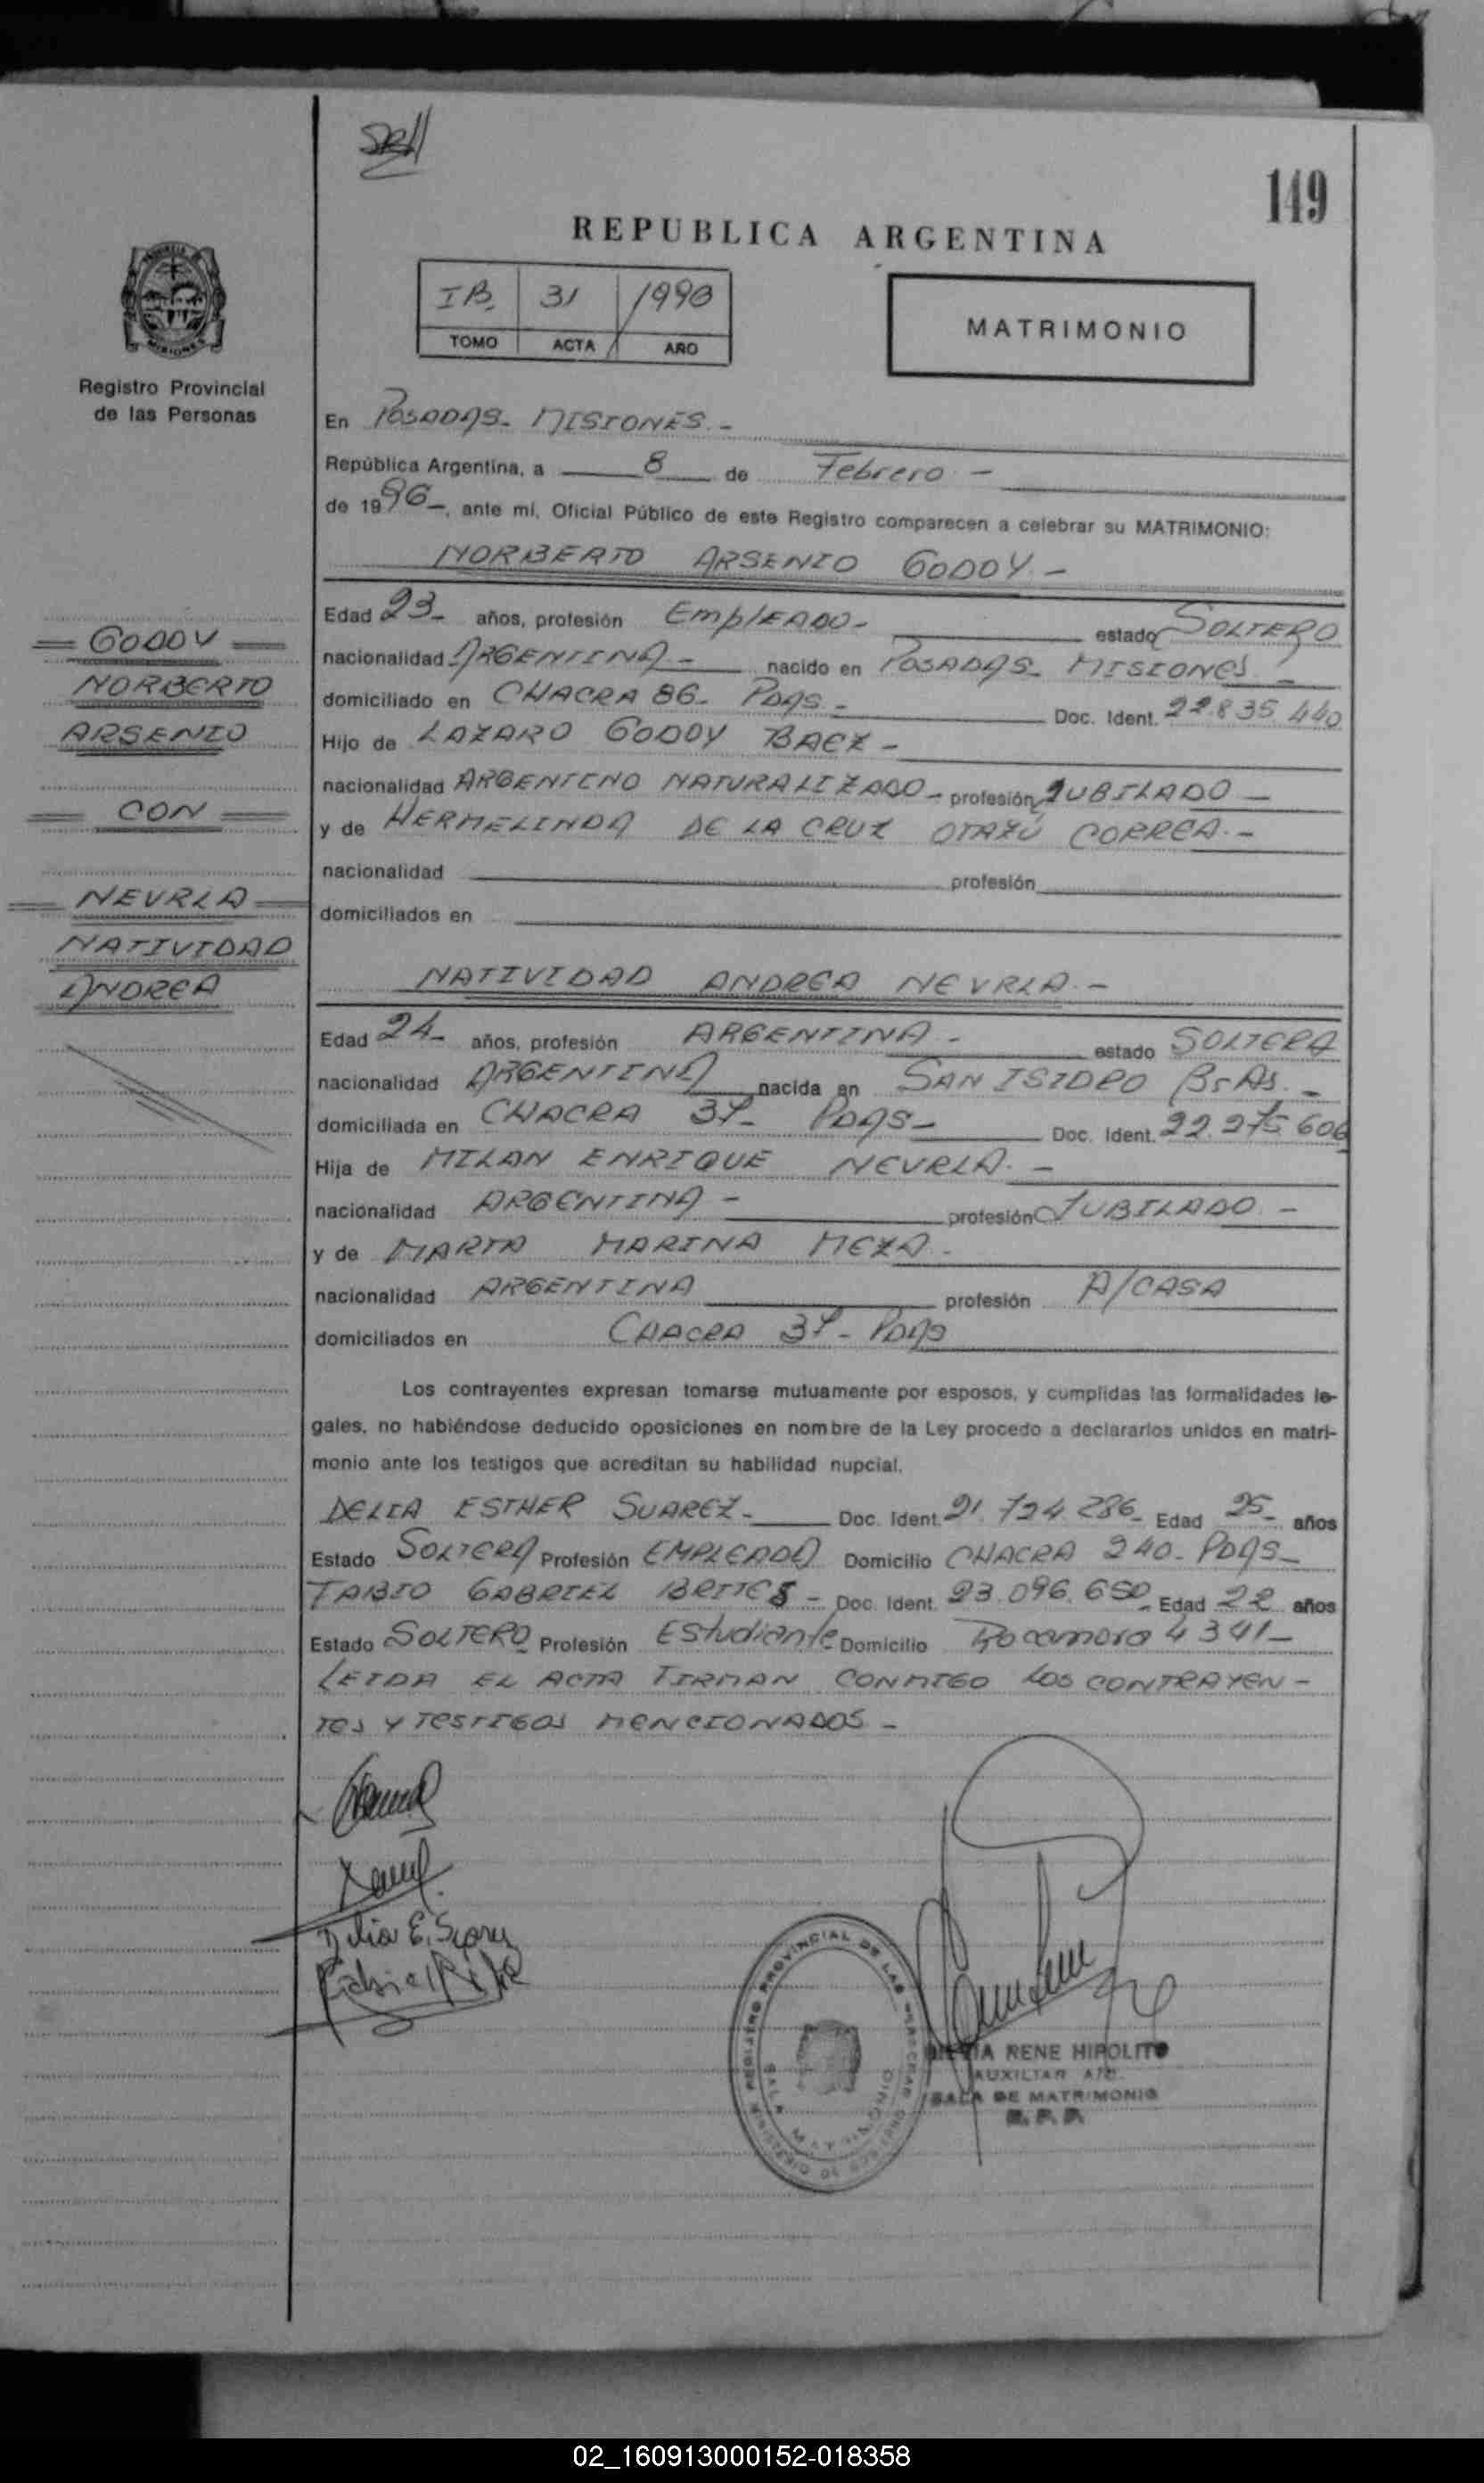 149
REPUBLICA ARGENTINA
IB. 31 1990
TOMO ACTA AÑO
MATRIMONIO
Registro Provincial
de las Personas
En POSADAS - MISIONES. -
República Argentina, a 8 de Febrero -
de 1996-, ante mí, Oficial Público de este Registro comparecen a celebrar su MATRIMONIO:
NORBERTO ARSENIO GODOY. -
Edad 23- años, profesión EmplEADO- estado SOLTERO
nacionalidad ARGENTINA - nacido en POSADAS - MISIONES -
domiciliado en CHACRA 86- PDAS - Doc. Ident. 22.835.440
Hijo de LAZARO GODOY BAEZ -
nacionalidad ARGENTINO NATURALIZADO - profesión JUBILADO -
y de HERMELINDA DE LA CRUZ OTAZÚ CORREA. -
nacionalidad profesión
domiciliados en
= GODOY =
NORBERTO
ARSENIO
= CON =
= NEVRLA =
NATIVIDAD
ANDREA
NATIVIDAD ANDREA NEVRLA. -
Edad 24- años, profesión ARGENTINA - estado SOLTERA
nacionalidad ARGENTINA nacida en SAN ISIDRO Bs As. -
domiciliada en CHACRA 37- PDAS- Doc. Ident. 22.275.606
Hija de MILAN ENRIQUE NEVRLA. -
nacionalidad ARGENTINA - profesión JUBILADO. -
y de MARTA MARINA MEZA -
nacionalidad ARGENTINA profesión A/CASA
domiciliados en CHACRA 37 - PDAS
Los contrayentes expresan tomarse mutuamente por esposos, y cumplidas las formalidades le-
gales, no habiéndose deducido oposiciones en nombre de la Ley procedo a declararlos unidos en matri-
monio ante los testigos que acreditan su habilidad nupcial.
DELIA ESTHER SUAREZ - Doc. Ident. 21.724.286- Edad 25- años
Estado SOLTERA Profesión EMPLEADA Domicilio CHACRA 240- PDAS-
FABIO GABRIEL BRITES - Doc. Ident. 23.096.650- Edad 22 años
Estado SOLTERO Profesión EStudiante Domicilio Rocamora 4341-
LEIDA EL ACTA FIRMAN CONMIGO LOS CONTRAYEN-
TES Y TESTIGOS MENCIONADOS -
Delia E. Suarez
REGISTRO PROVINCIAL DE LAS PERSONAS
SALA MATRIMONIO
RENE HIPOLITO
AUXILIAR
SALA DE MATRIMONIO
R. P. P.
02_160913000152-018358